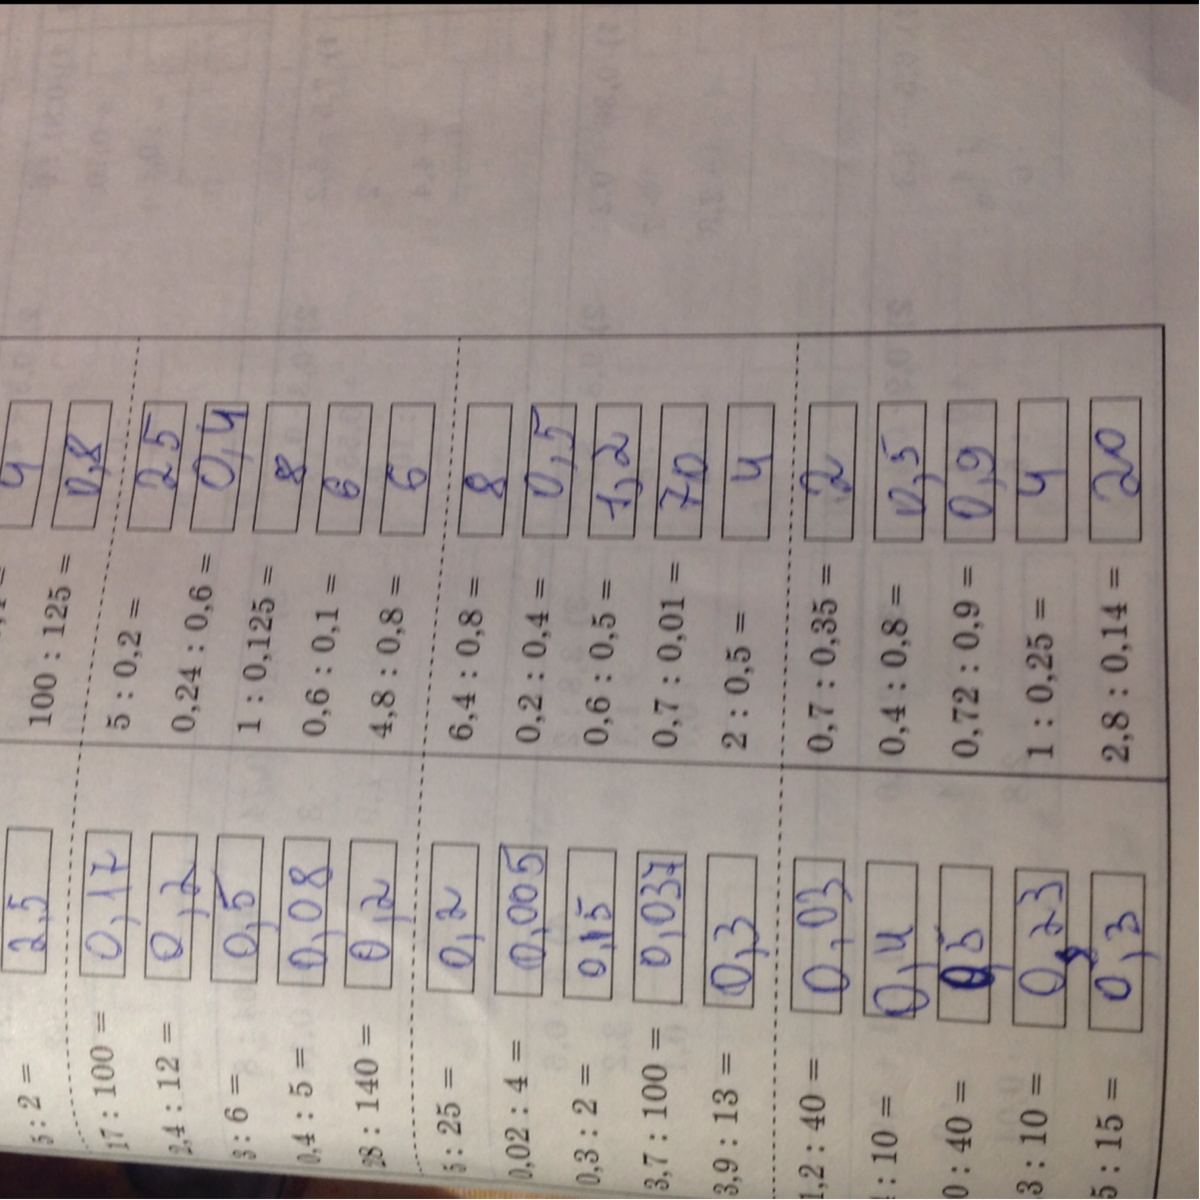 5 : 2 = 2,5
17 : 100 = 0,17
2,4 : 12 = 0,2
3 : 6 = 0,5
0,4 : 5 = 0,08
28 : 140 = 0,2
5 : 25 = 0,2
0,02 : 4 = 0,005
0,3 : 2 = 0,15
3,7 : 100 = 0,037
3,9 : 13 = 0,3
1,2 : 40 = 0,03
: 10 = 0,4
0 : 40 = 0,5
3 : 10 = 0,23
5 : 15 = 0,3
4
100 : 125 = 0,8
5 : 0,2 = 25
0,24 : 0,6 = 0,4
1 : 0,125 = 8
0,6 : 0,1 = 6
4,8 : 0,8 = 6
6,4 : 0,8 = 8
0,2 : 0,4 = 0,5
0,6 : 0,5 = 1,2
0,7 : 0,01 = 70
2 : 0,5 = 4
0,7 : 0,35 = 2
0,4 : 0,8 = 0,5
0,72 : 0,9 = 0,9
1 : 0,25 = 4
2,8 : 0,14 = 20